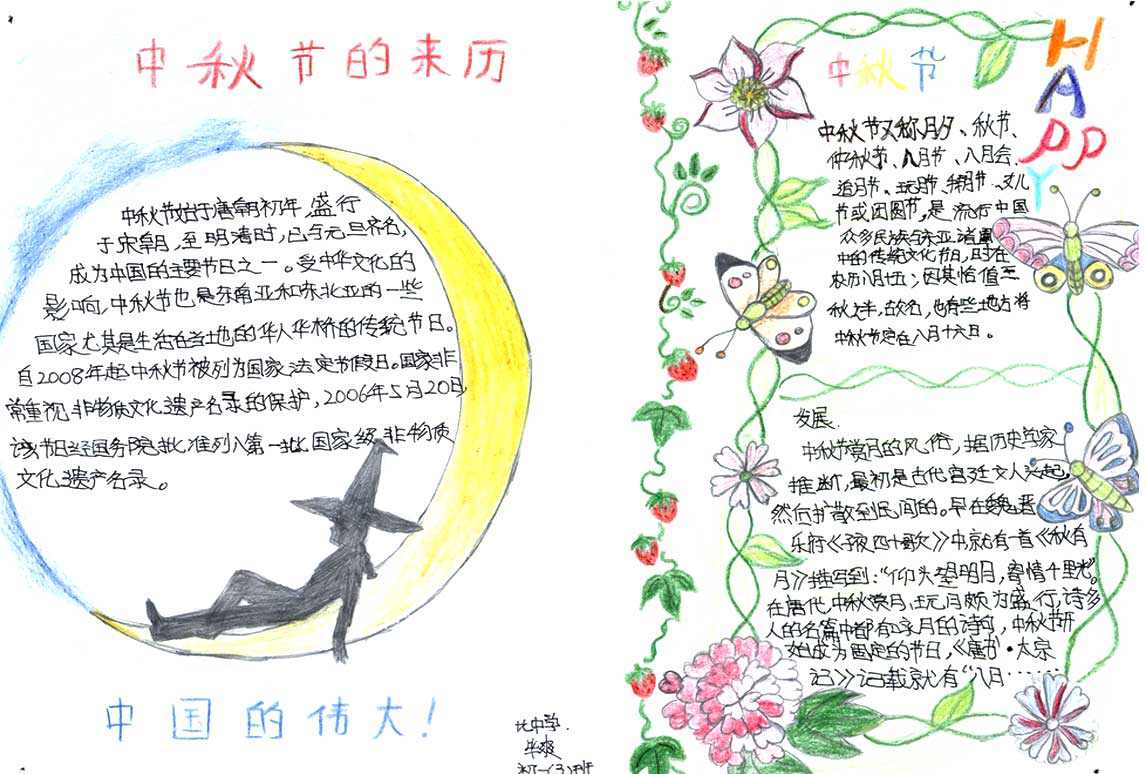 中秋节的来历
中秋节始于唐朝初年,盛行
于宋朝,至明清时,已与元旦齐名,
成为中国的主要节日之一。受中华文化的
影响,中秋节也是东南亚和东北亚的一些
国家尤其是生活在当地的华人华桥的传统节日。
自2008年起中秋节被列为国家法定节假日。国家非
常重视非物质文化遗产名录的保护,2006年5月20日,
该节日经国务院批准列入第一批国家级非物质
文化遗产名录。
中国的伟大!
北中学.
初一(3)班
中秋节
HAPPY
中秋节又称月夕、秋节、
仲秋节、八月节、八月会、
追月节、玩月节、拜月节、女儿
节或团圆节,是流行中国
众多民族与东亚诸国
中的传统文化节日,时在
农历八月十五;因其恰值三
秋之半,故名,也有些地方将
中秋节定在八月十六日。
发展.
中秋节赏月的风俗,据历史学家
推断,最初是古代宫廷文人兴起,
然后扩散到民间的。早在魏晋
乐府《子夜四十歌》中就有一首《秋有
月》描写到:“仰头望明月,寄情千里光”。
在唐代,中秋赏月、玩月颇为盛行,诗多
人的名篇中都有咏月的诗句,中秋节开
始成为固定的节日,《唐书·太宗
记》记载就有“八月······